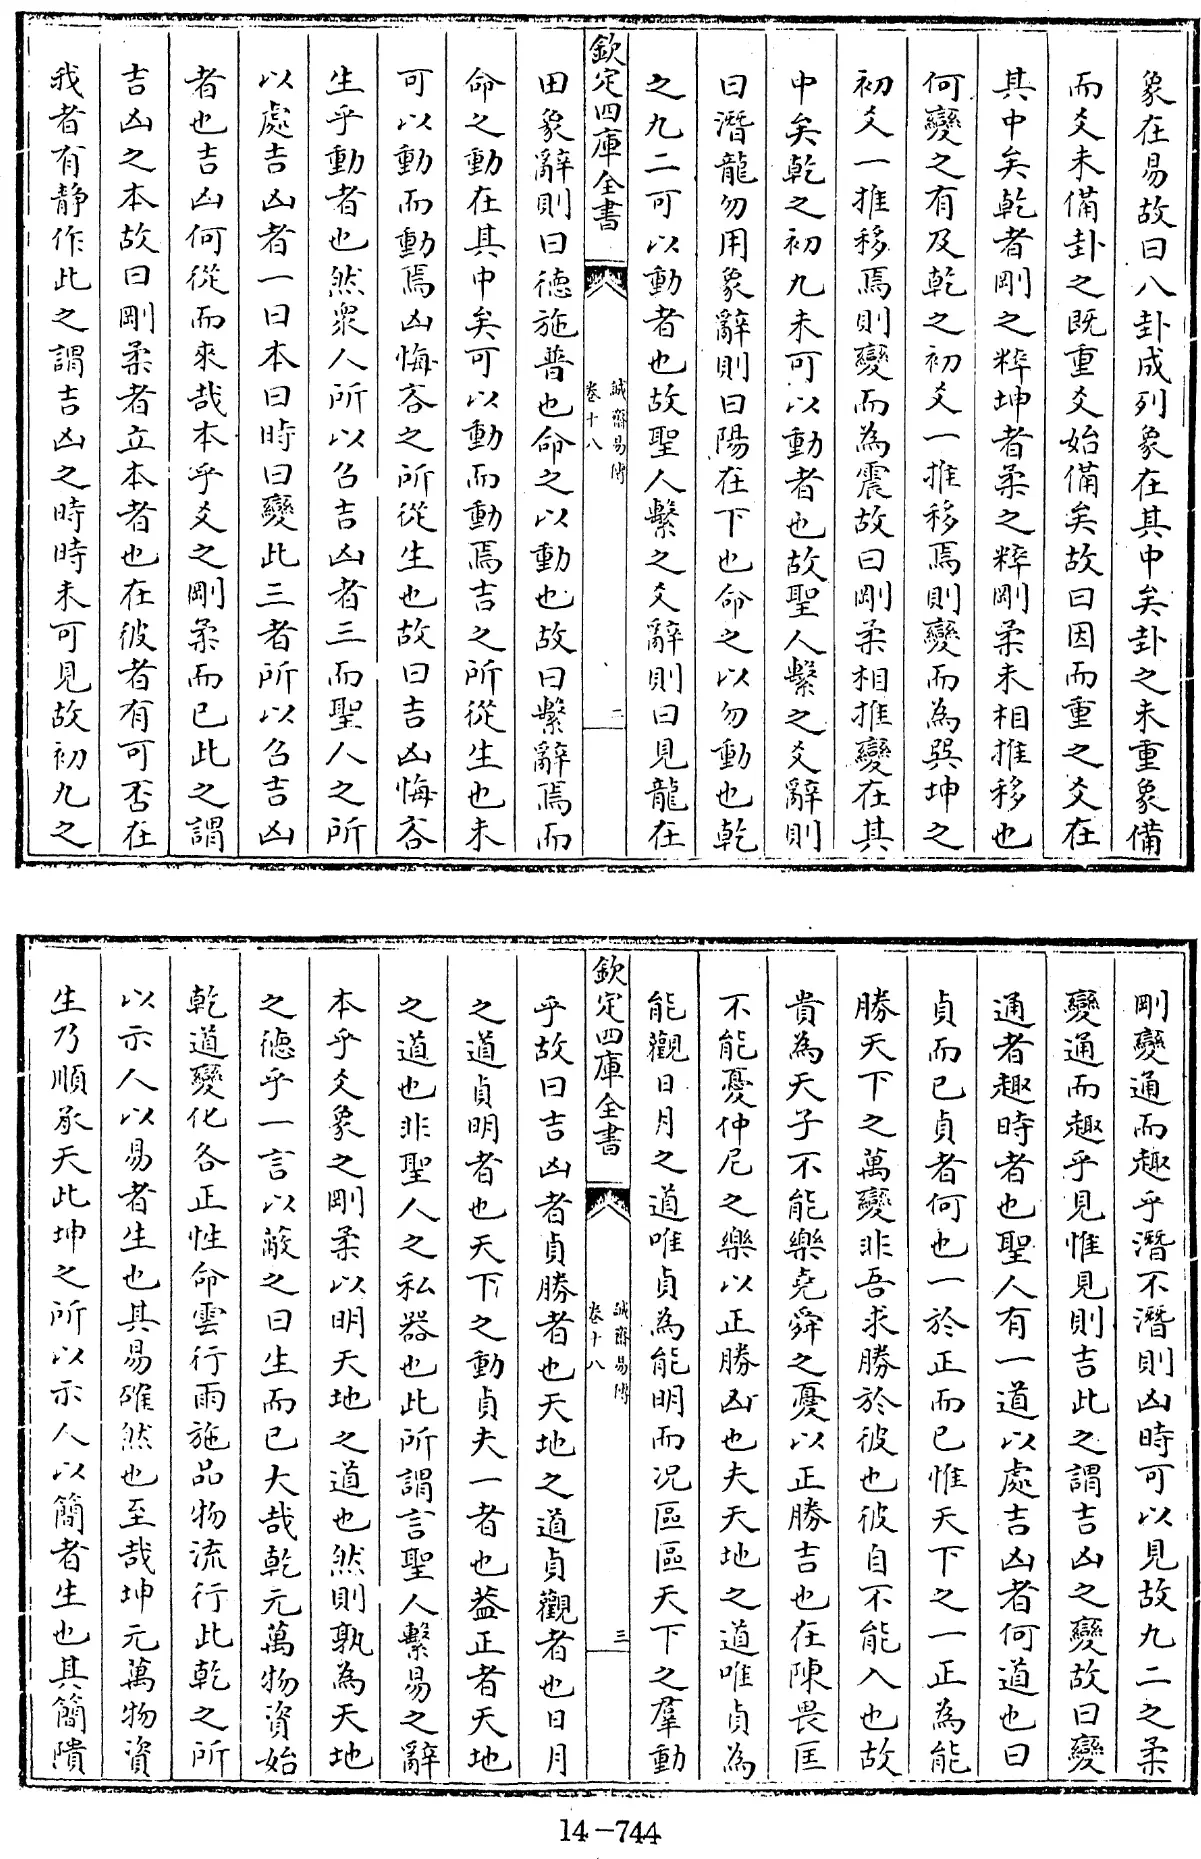 象在易故曰八卦成列象在其中矣卦之未重象備
而爻未備卦之既重爻始備矣故曰因而重之爻在
其中矣乾者剛之粹坤者柔之粹剛柔未相推移也
何變之有及乾之初爻一推移焉則變而為巽坤之
初爻一推移焉則變而為震故曰剛柔相推變在其
中矣乾之初九未可以動者也故聖人繫之爻辭則
曰潛龍勿用象辭則曰陽在下也命之以勿動也乾
之九二可以動者也故聖人繫之爻辭則曰見龍在
欽定四庫全書
誠齋易傳
卷十八
二
田象辭則曰德施普也命之以動也故曰繫辭焉而
命之動在其中矣可以動而動焉吉之所從生也未
可以動而動焉凶悔吝之所從生也故曰吉凶悔吝
生乎動者也然衆人所以召吉凶者三而聖人之所
以處吉凶者一曰本曰時曰變此三者所以召吉凶
者也吉凶何從而來哉本乎爻之剛柔而已此之謂
吉凶之本故曰剛柔者立本者也在彼者有可否在
我者有静作此之謂吉凶之時時未可見故初九之
剛變通而趣乎潛不潛則凶時可以見故九二之柔
變通而趣乎見惟見則吉此之謂吉凶之變故曰變
通者趣時者也聖人有一道以處吉凶者何道也曰
貞而已貞者何也一於正而已惟天下之一正為能
勝天下之萬變非吾求勝於彼也彼自不能入也故
貴為天子不能樂堯舜之憂以正勝吉也在陳畏匡
不能憂仲尼之樂以正勝凶也夫天地之道唯貞為
能觀日月之道唯貞為能明而況區區天下之羣動
欽定四庫全書
誠齋易傳
卷十八
三
乎故曰吉凶者貞勝者也天地之道貞觀者也日月
之道貞明者也天下之動貞夫一者也葢正者天地
之道也非聖人之私器也此所謂言聖人繫易之辭
本乎爻象之剛柔以明天地之道也然則孰為天地
之德乎一言以蔽之曰生而已大哉乾元萬物資始
乾道變化各正性命雲行雨施品物流行此乾之所
以示人以易者生也其易確然也至哉坤元萬物資
生乃順承天此坤之所以示人以簡者生也其簡隤
14-744